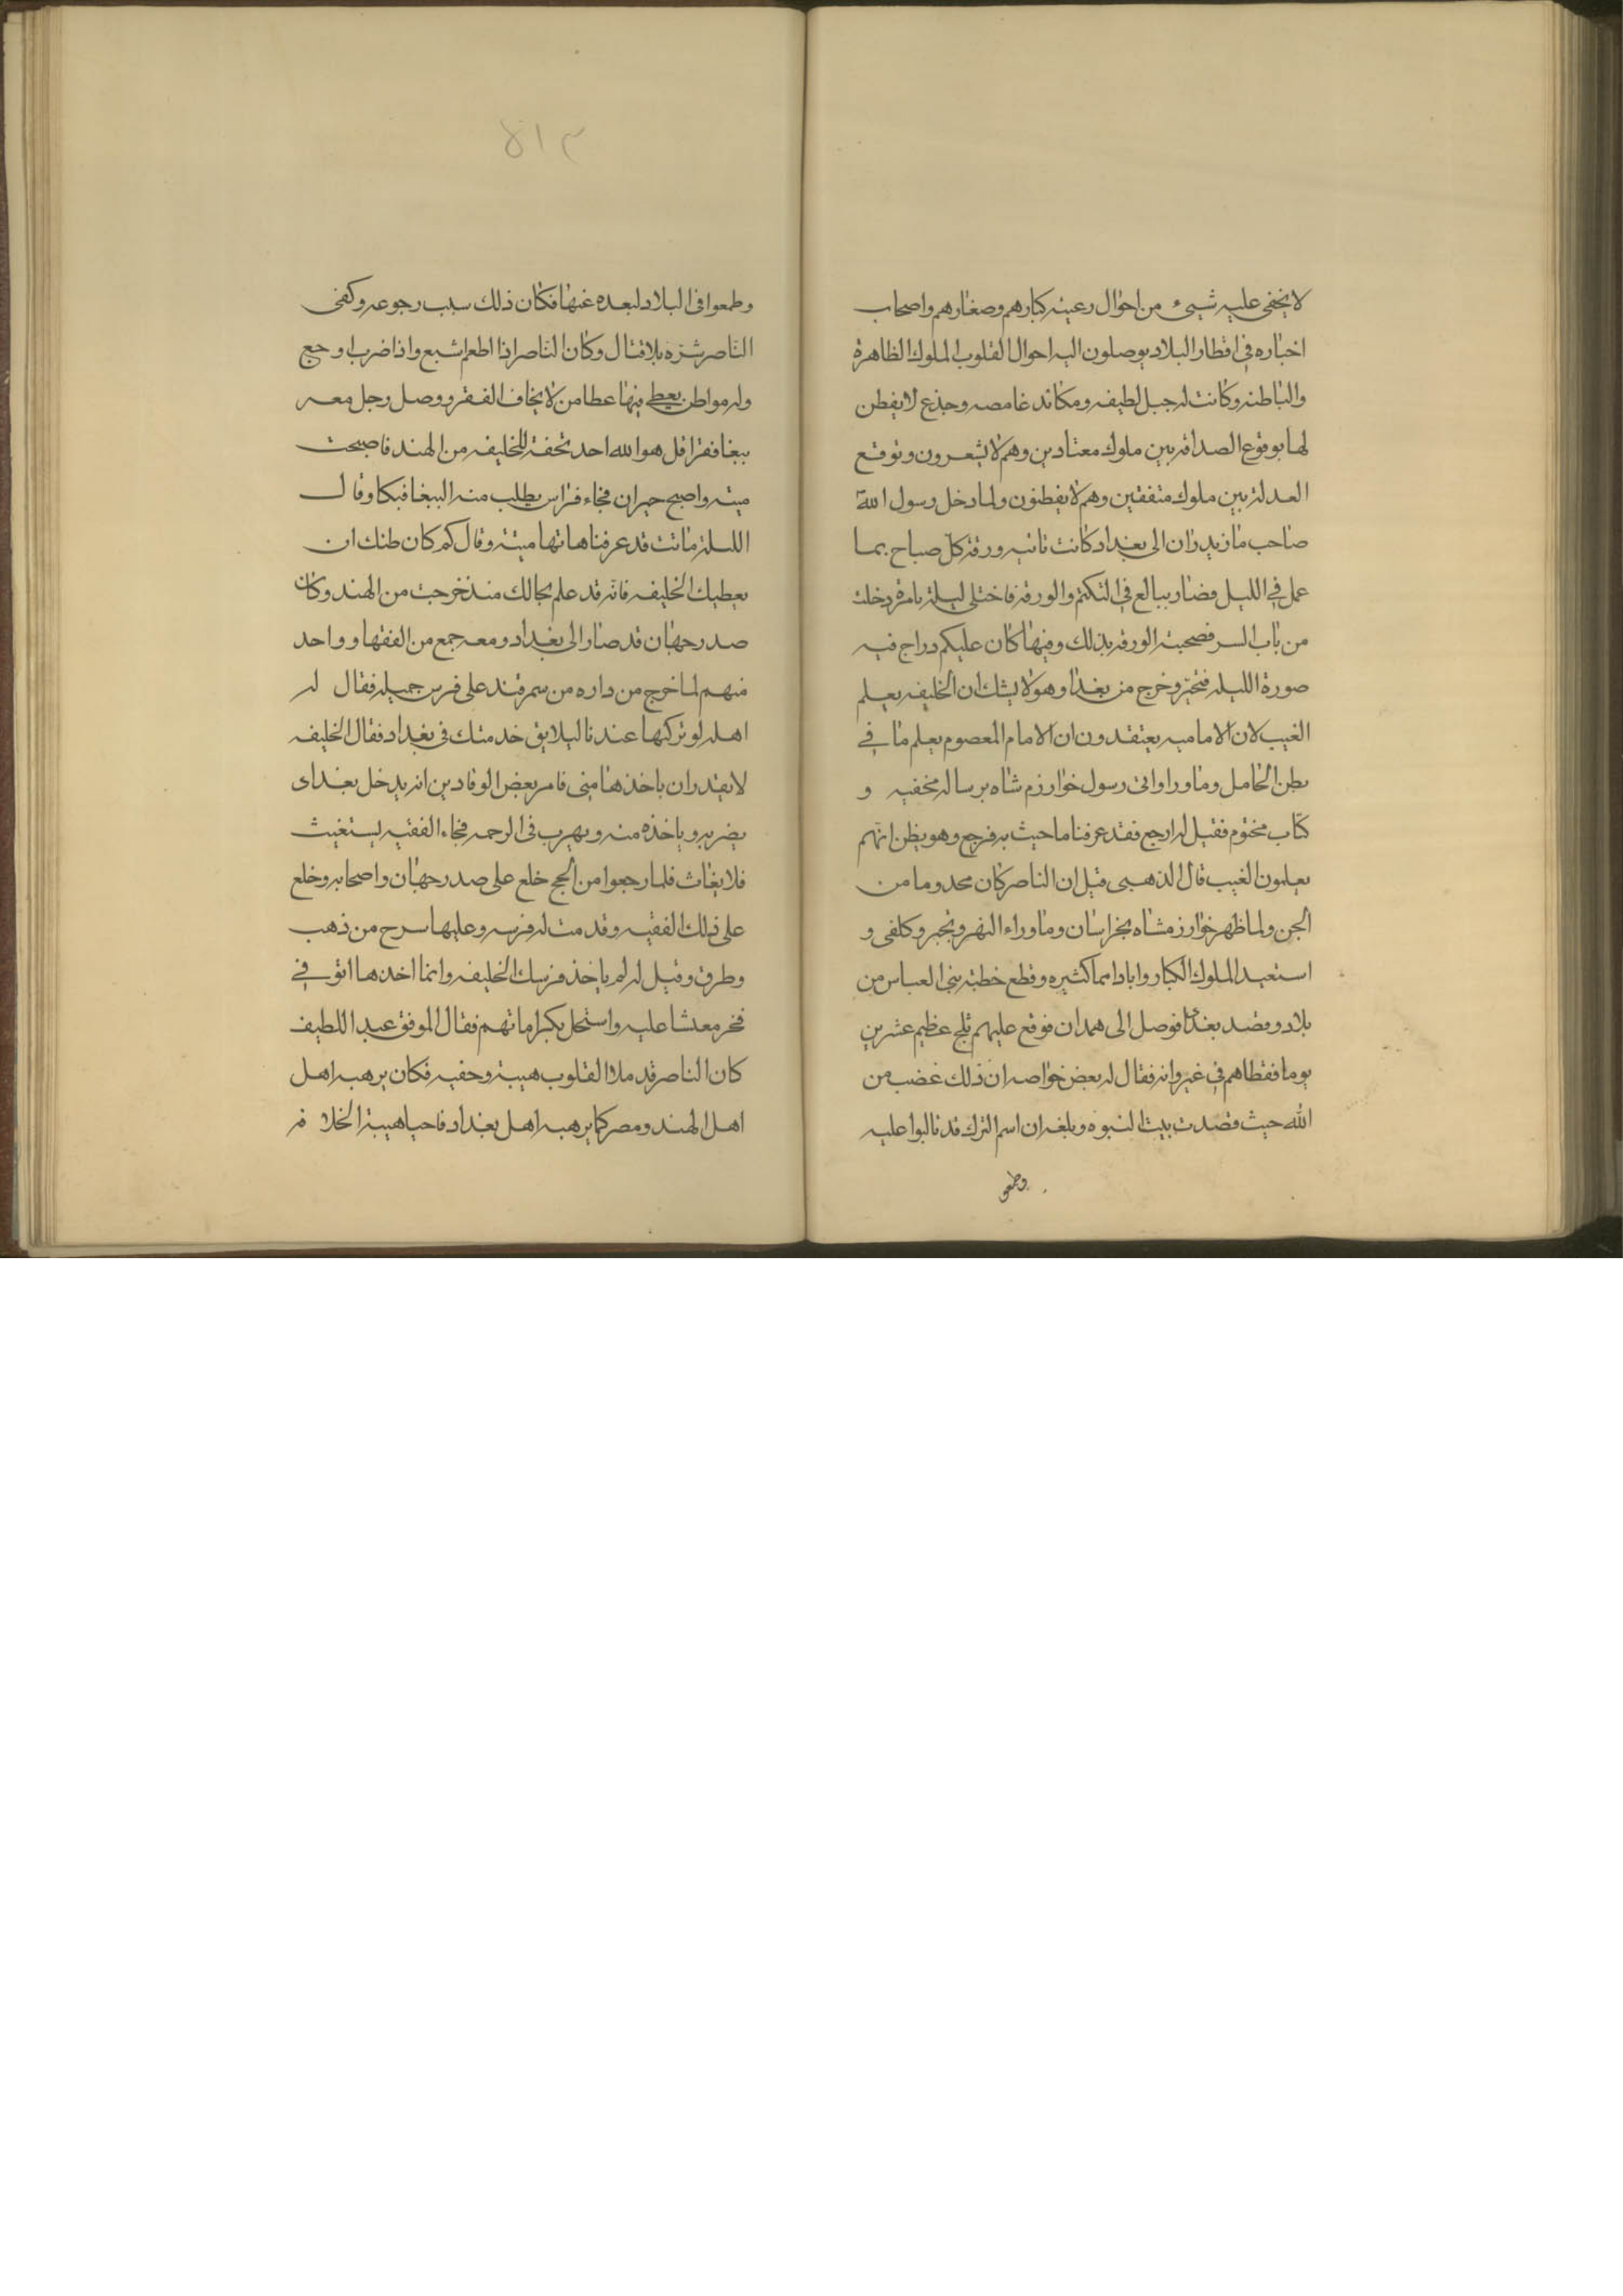 لا يخفى عليه شيئ من احوال رعيته كبارهم وصغارهم واصحاب
اخباره في اقطار البلاد يوصلون اليه احوال القلوب الملوك الظاهرة
والباطنه وكانت له حيل لطيفه ومكائد غامصه وخدع لا يفطن
لها يوقع الصداقه بين ملوك معتادين وهم لا يشعرون ويوقع
العدلة بين ملوك متفقين وهم لا يفطنون ولما دخل رسول الله
صاحب مازيدران الى بغداد كانت تاتيه ورقة كل صباح بما
عمل في الليل فصار يبالغ في التكتم والورقة فاختلى ليلة بامرة دخلت
من باب السر فصحبته الورقه بذلك وفيها كان عليكم دراج فيه
صورة الليله فتحيز وخرج من بغداد وهو لا يشك ان الخليفه يعلم
الغيب لان الاماميه يعتقدون ان الامام المعصوم يعلم ما في
بطن الحامل وما ورا واتى رسول خوارزم شاه برساله مخفيه و
كتاب مختوم فقيل له ارجع فقد عرفنا ما حيث به فرجع وهو يظن انهم
يعلمون الغيب قال الذهبى قيل ان الناصر كان مخدوما من
الجن ولما ظهر خوارزمشاه بخراسان وما وراء النهر وتجبر وكلفى و
استعبد الملوك الكبار واباد امما كثيره وقطع خطبة بنى العباس من
بلاد وقصد بغداد فوصل الى همدان فوقع عليهم ثلج عظيم عشرين
يوما فغطاهم في غير وانه فقال له بعض خواصه ان ذلك غضب من
الله حيث قصدت بيت النبوه وبلغه ان اسم الترك قد تالبوا عليه
وطمعو
٥١٣
وطمعوا فى البلاد لبعده عنها فكان ذلك سبب رجوعه وكفى
الناصر شره بلا قتال وكان الناصر اذا اطعم اشبع واذا ضرب اوجع
وله مواطن يعطى فيها عطا من لا يخاف الفقر ووصل رجل معه
ببغا فقرا قل هو الله احد تحفة للخليفه من الهند فاصبحت
ميته واصبح حيران فجاء فراس يطلب منه الببغا فبكا وقال
الليلة ماتت قد عرفنا هاتها ميتة وقال كم كان ظنك ان
يعطيك الخليفه فانه قد علم بحالك منذ خرجت من الهند وكان
صدر جهان قد صار الى بغداد ومعه جمع من الفقها وواحد
منهم لما خرج من داره من سمرقند على فرس جميله فقال له
اهله لو تركتها عندنا ليلا يق خدمتك فى بغداد فقال الخليفه
لا يقدر ان ياخذها منى فامر بعض الوقادين انه يدخل بغداى
يضربه وياخذه منه ويهرب فى الرحمه فجاء الفقيه يستغيث
فلا يغاث فلما رجعوا من الحج خلع على صدر جهان واصحابه وخلع
على ذلك الفقيه وقدمت له فرسه وعليها سرح من ذهب
وطرق وقيل له لم ياخذ فرسك الخليفه وانما اخذها اتوفي
فخر مغشا عليه واستحل بكراماتهم فقال الموفق عبد اللطيف
كان الناصر قد ملا القلوب هيبة وحفيه فكان يرهبه اهل
اهل الهند ومصر كما يرهبه اهل بغداد فاحيا هيبة الخلافه